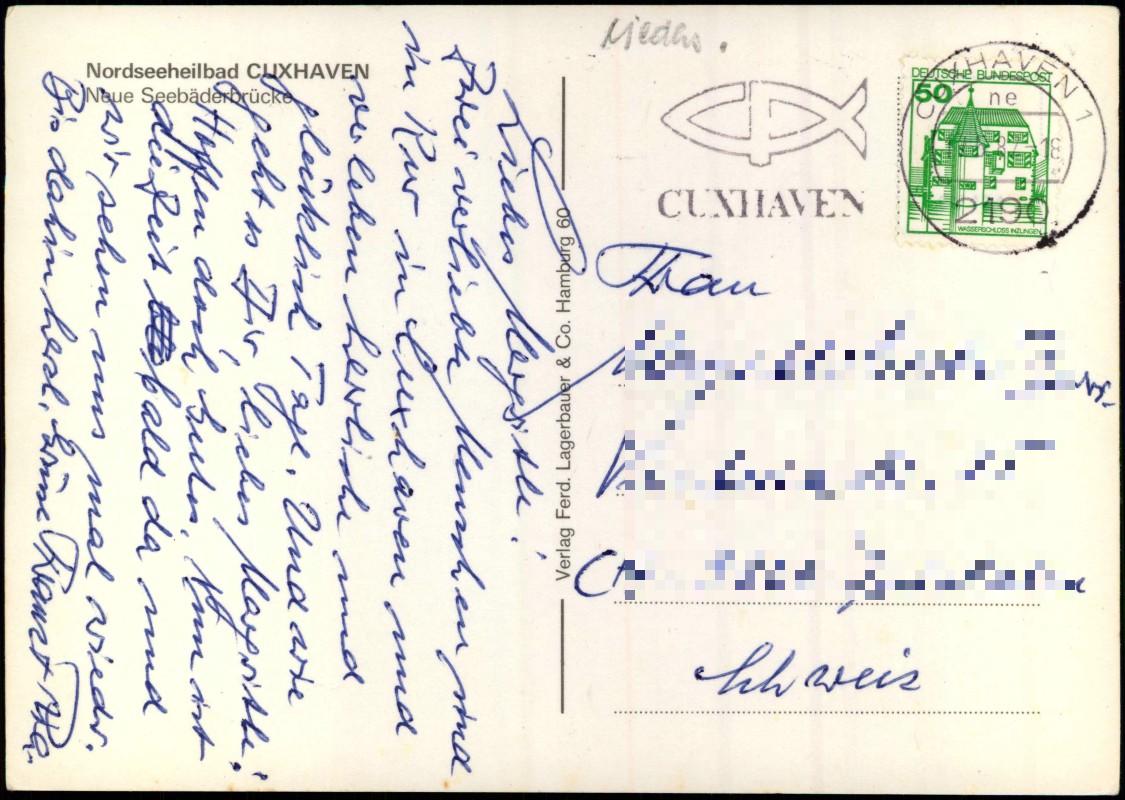 Nordseeheilbad CUXHAVEN
Neue Seebäderbrücke
Liebes Margritle!
Zwei verliebte Menschen sind
in Kur in Cuxhaven und
verleben herrliche und
glücklich Tage. Und wie
geht es Dir, liebes Margritle!
Hoffen doch gut. Nun ist
die Zeit bald da und
wir sehn uns mal wieder.
Bis dahin herzl. Grüsse
Verlag Ferd. Lagerbauer & Co. Hamburg 60
CUXHAVEN
CUXHAVEN 1
ne
2190
DEUTSCHE BUNDESPOST
50
WASSERSCHLOSS INZLINGEN
Frau
Schweiz